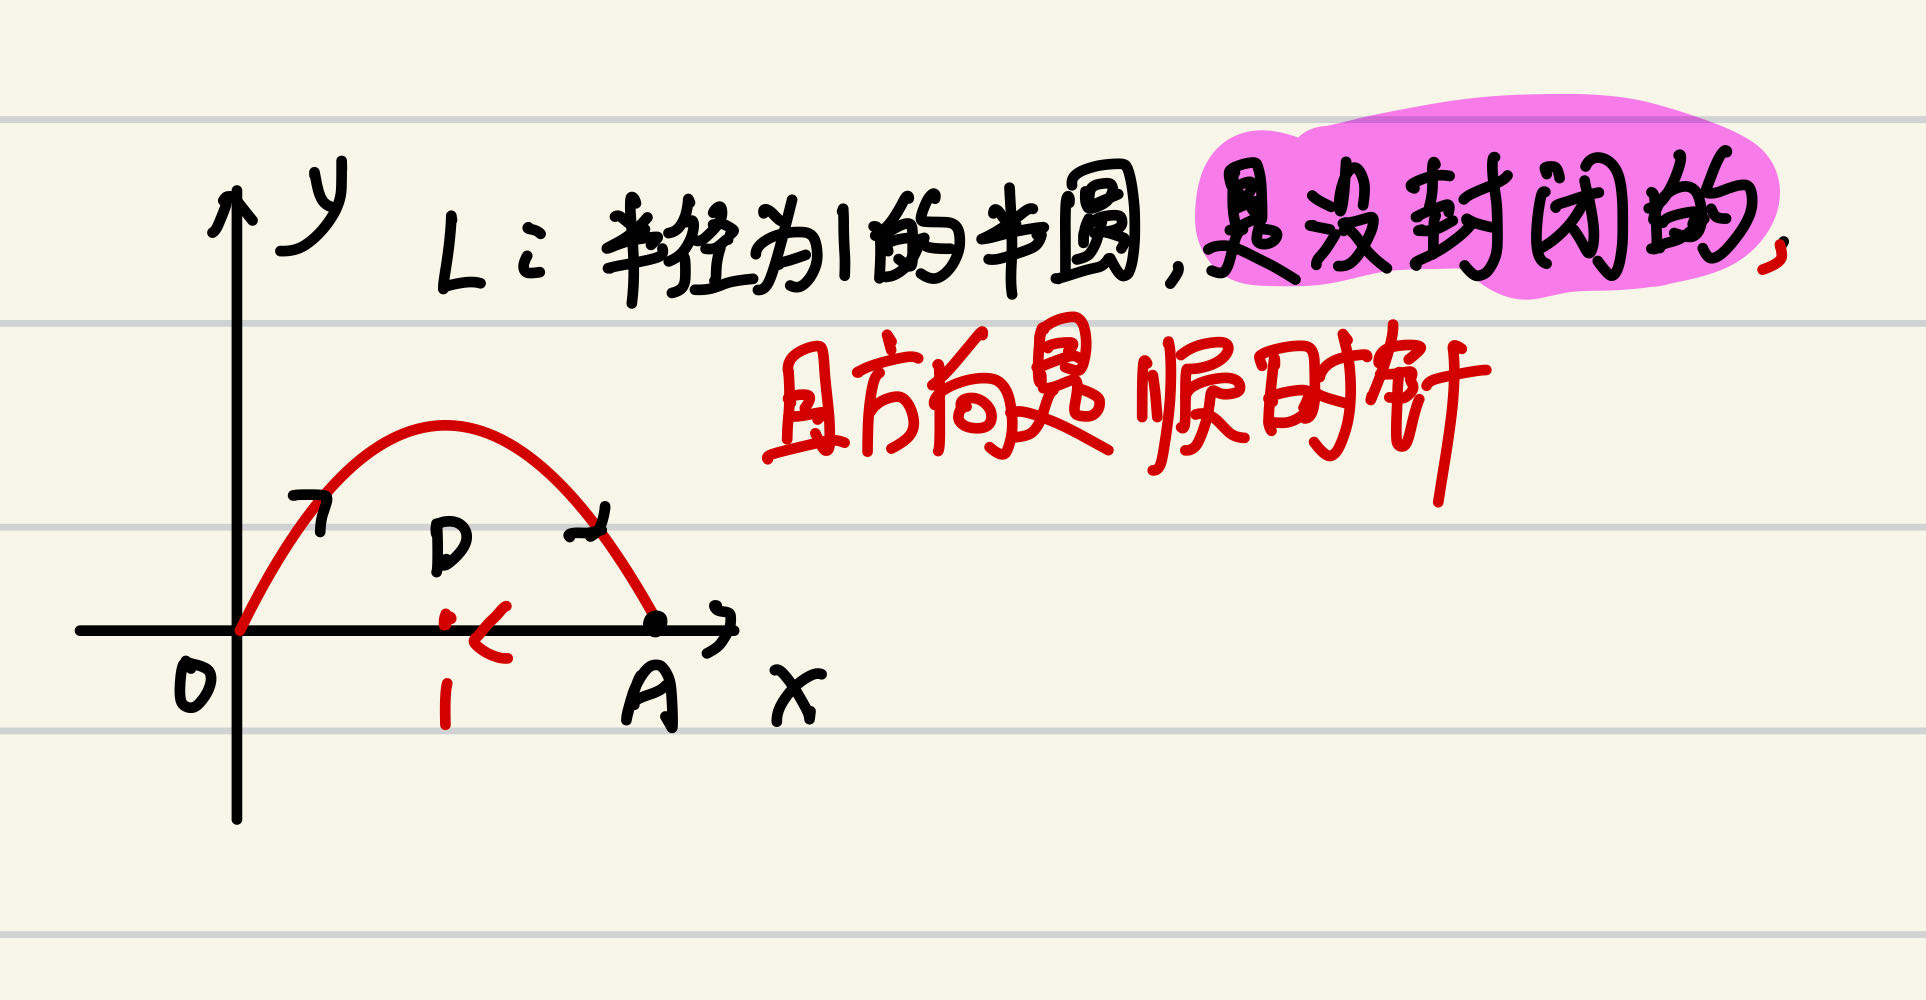 y
L: 半径为1的半圆,是没封闭的,
且方向是顺时针
D
O
1
A
x